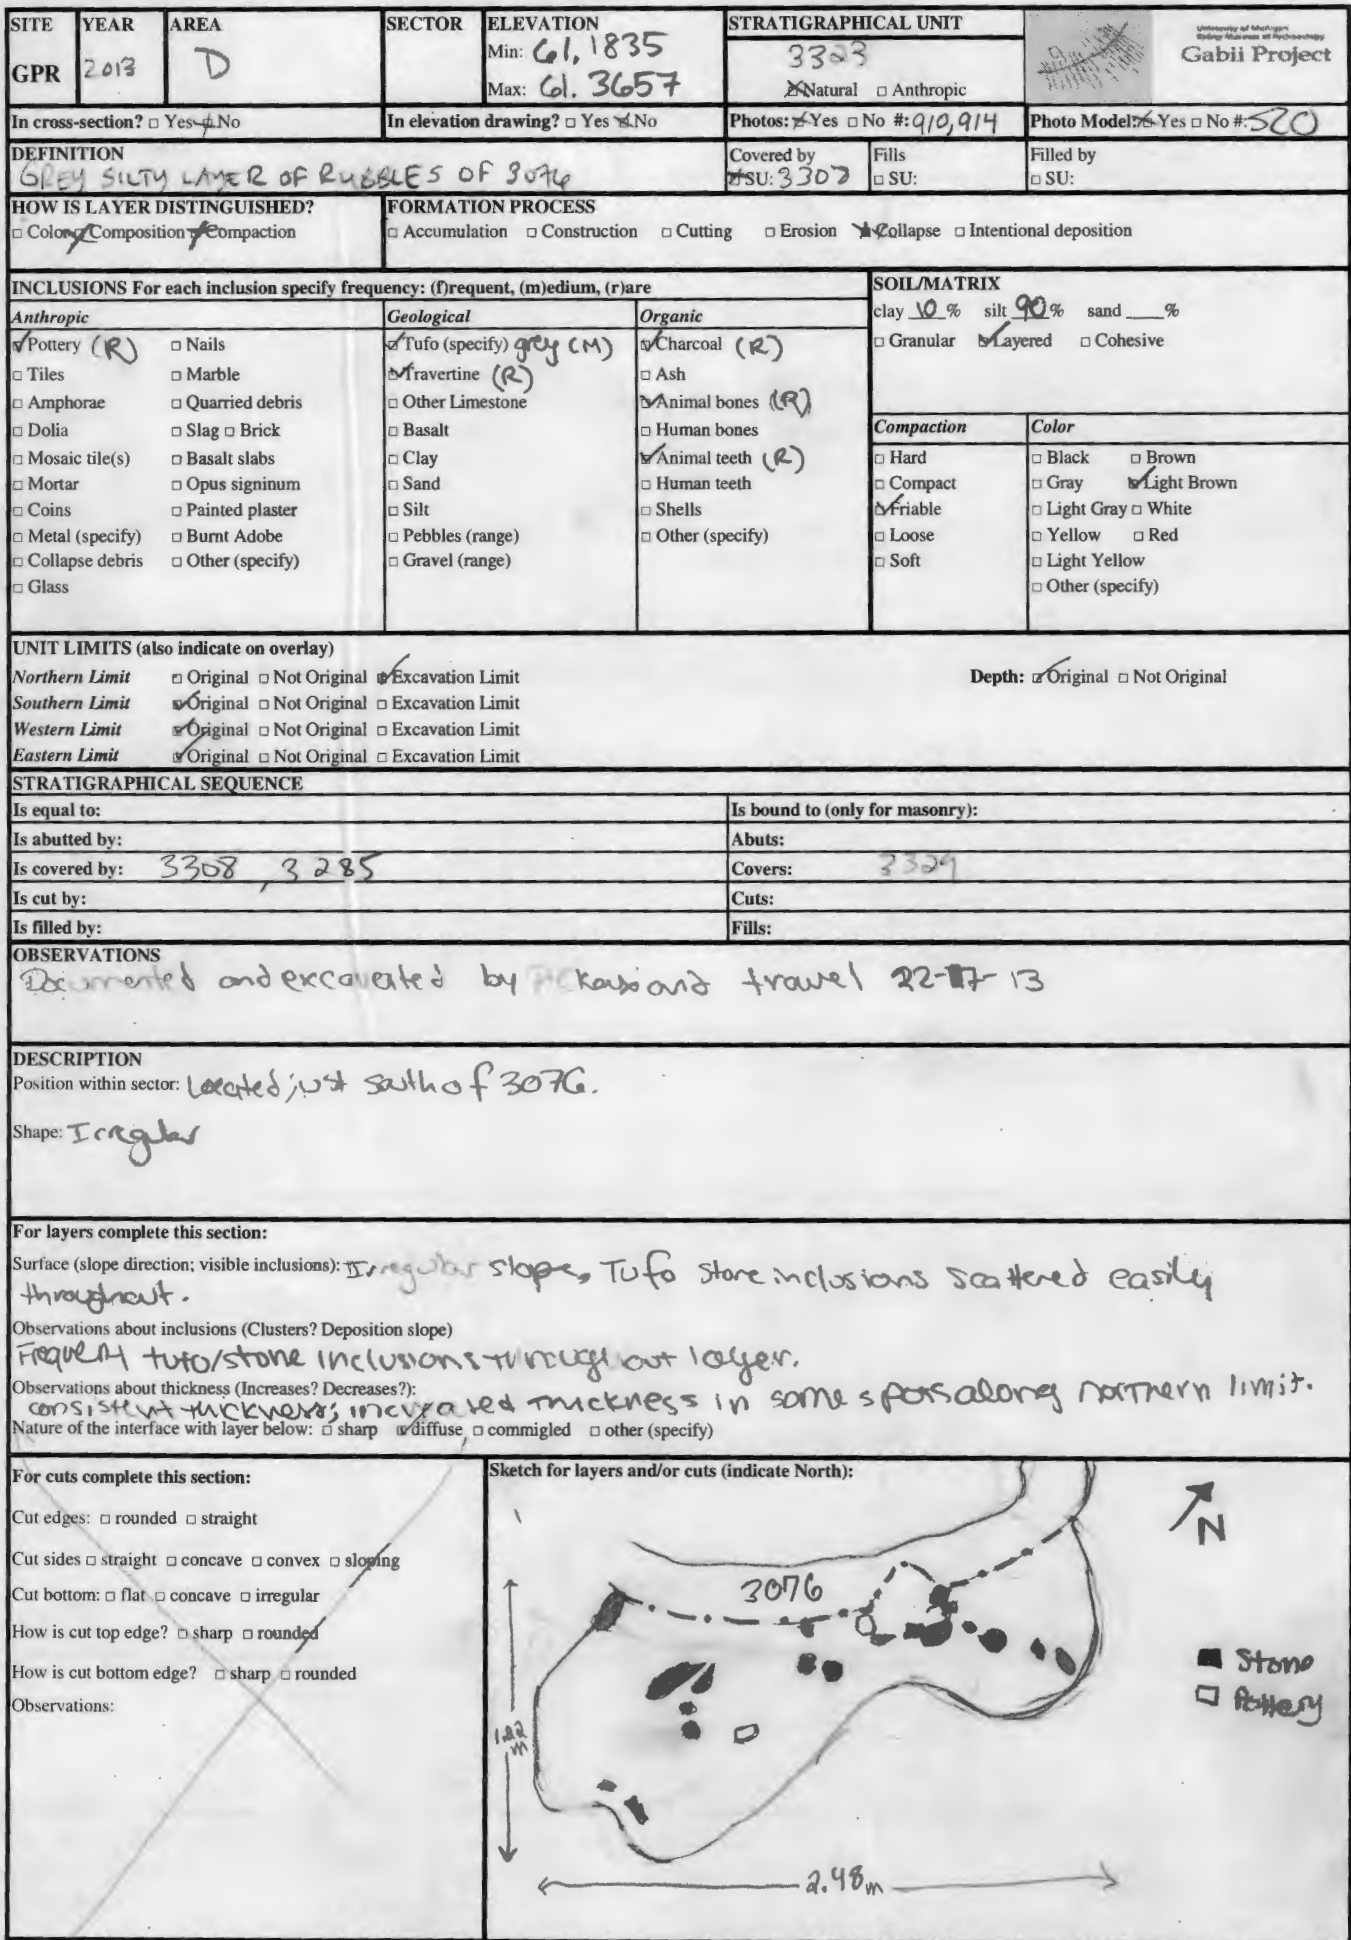 SITE YEAR AREA SECTOR ELEVATION STRATIGRAPHICAL UNIT
GPR 2013 D Min: 61.1835 3323
Max: 61.3657 ☒Natural □ Anthropic
University of Michigan
Kelsey Museum of Archaeology
Gabii Project
In cross-section? □ Yes ☒No In elevation drawing? □ Yes ☒No Photos: ☒Yes □ No #: 910,914 Photo Model: ☒Yes □ No #: 520
DEFINITION
GREY SILTY LAYER OF RUBBLES OF 3076
Covered by
☒SU: 3308
Fills
□ SU:
Filled by
□ SU:
HOW IS LAYER DISTINGUISHED?
□ Color ☒Composition ☒Compaction
FORMATION PROCESS
□ Accumulation □ Construction □ Cutting □ Erosion ☒Collapse □ Intentional deposition
INCLUSIONS For each inclusion specify frequency: (f)requent, (m)edium, (r)are
Anthropic
☑Pottery (R) □ Nails
□ Tiles □ Marble
□ Amphorae □ Quarried debris
□ Dolia □ Slag □ Brick
□ Mosaic tile(s) □ Basalt slabs
□ Mortar □ Opus signinum
□ Coins □ Painted plaster
□ Metal (specify) □ Burnt Adobe
□ Collapse debris □ Other (specify)
□ Glass
Geological
☑Tufo (specify) grey (M)
☑Travertine (R)
□ Other Limestone
□ Basalt
□ Clay
□ Sand
□ Silt
□ Pebbles (range)
□ Gravel (range)
Organic
☑Charcoal (R)
□ Ash
☑Animal bones (R)
□ Human bones
☑Animal teeth (R)
□ Human teeth
□ Shells
□ Other (specify)
SOIL/MATRIX
clay 10 % silt 90 % sand ____%
□ Granular ☑Layered □ Cohesive
Compaction
□ Hard
□ Compact
☑Friable
□ Loose
□ Soft
Color
□ Black □ Brown
□ Gray ☑Light Brown
□ Light Gray □ White
□ Yellow □ Red
□ Light Yellow
□ Other (specify)
UNIT LIMITS (also indicate on overlay)
Northern Limit □ Original □ Not Original ☑Excavation Limit Depth: ☑Original □ Not Original
Southern Limit ☑Original □ Not Original □ Excavation Limit
Western Limit ☑Original □ Not Original □ Excavation Limit
Eastern Limit ☑Original □ Not Original □ Excavation Limit
STRATIGRAPHICAL SEQUENCE
Is equal to: Is bound to (only for masonry):
Is abutted by: Abuts:
Is covered by: 3308, 3285 Covers: 3329
Is cut by: Cuts:
Is filled by: Fills:
OBSERVATIONS
Documented and excavated by Pickaxe and trowel 22-7-13
DESCRIPTION
Position within sector: Located just south of 3076.
Shape: Irregular
For layers complete this section:
Surface (slope direction; visible inclusions): Irregular slope, Tufo stone inclusions scattered easily
throughout.
Observations about inclusions (Clusters? Deposition slope)
Frequent tufo/stone inclusions throughout layer.
Observations about thickness (Increases? Decreases?):
consistent thickness; increased thickness in some spots along northern limit.
Nature of the interface with layer below: □ sharp ☑diffuse □ commigled □ other (specify)
For cuts complete this section:
Cut edges: □ rounded □ straight
Cut sides □ straight □ concave □ convex □ sloping
Cut bottom: □ flat □ concave □ irregular
How is cut top edge? □ sharp □ rounded
How is cut bottom edge? □ sharp □ rounded
Observations:
Sketch for layers and/or cuts (indicate North):
N
3076
Stone
Pottery
m
2.48m